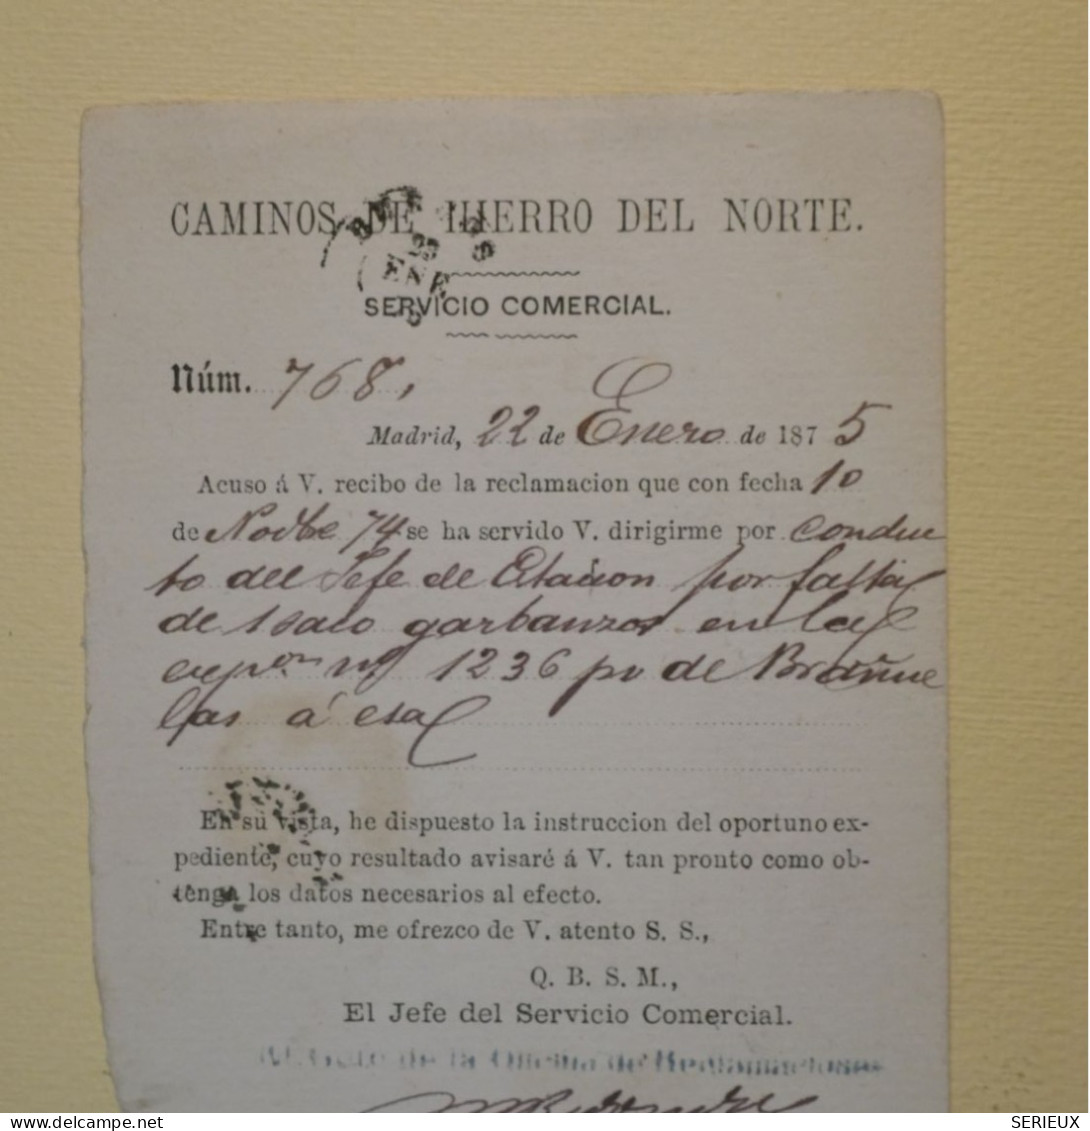 CAMINOS DE HIERRO DEL NORTE.
29
ENE
SERVICIO COMERCIAL.
Núm. 768,
Madrid, 22 de Enero de 1875
Acuso á V. recibo de la reclamacion que con fecha 10
de Nobre 74 se ha servido V. dirigirme por conduc
to del Jefe de Estacion por falta
de 1 saco garbanzos en la
expon nº 1236 pv de Brañue
las á esa
En su vista, he dispuesto la instruccion del oportuno ex-
pediente, cuyo resultado avisaré á V. tan pronto como ob-
tenga los datos necesarios al efecto.
Entre tanto, me ofrezco de V. atento S. S.,
Q. B. S. M.,
El Jefe del Servicio Comercial.
de la Oficina de Reclamaciones
SERIEUX